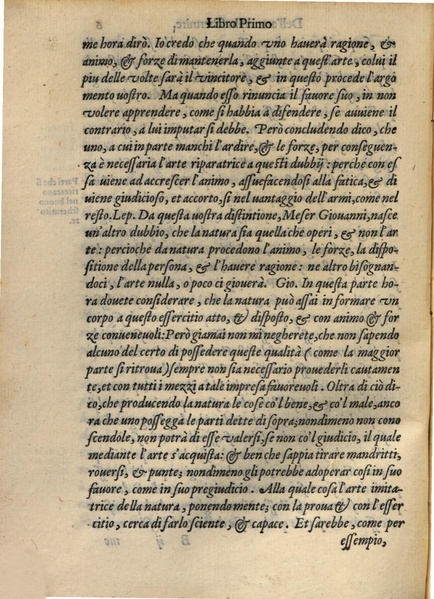 Libro Primo
me hora dirò. Io credo che quando vno hauerà ragione, &
animo, & forze di mantenerla, aggiunte a quest'arte, colui il
piu delle volte sarà il vincitore, & in questo procede l'argo
mento vostro. Ma quando esso rinuncia il fauore suo, in non
volere apprendere, come si habbia a difendere, se auuiene il
contrario, a lui imputar si debbe. Però concludendo dico, che
uno, a cui in parte manchi l'ardire, & le forze, per conseguen-
za è necessaria l'arte riparatrice a questi dubbij: perche con es
sa uiene ad accrescer l'animo, assuefacendosi alla fatica, & di
uiene giudicioso, et accorto, si nel uantaggio dell'armi, come nel
resto. Lep. Da questa uostra distintione, Meser Giouanni, nasce
un'altro dubbio, che la natura sia quella che operi, & non l'ar
te: percioche da natura procedono l'animo, le forze, la dispo-
sitione della persona, & l'hauere ragione: ne altro bisognan-
doci, l'arte nulla, o poco ci giouerà. Gio. In questa parte ho-
ra douete considerare, che la natura può assai in formare vn
corpo a questo essercitio atto, & disposto, & con animo & for
ze conueneuoli: Però giamai non mi negherete, che non sapendo
alcuno del certo di possedere queste qualità (come la maggior
parte si ritroua) sempre non sia necessario prouederli cautamen
te, et con tutti i mezzi a tale impresa fauoreuoli. Oltra di ciò di-
co, che producendo la natura le cose cò'l bene, & cò'l male, anco
ra che uno possegga le parti dette di sopra; nondimeno non cono
scendole, non potrà di esse valersi, se non cò'l giudicio, il quale
mediante l'arte s'acquista: & ben che sappia tirare mandritti,
rouersi, & punte; nondimeno gli potrebbe adoperar cosi in suo
fauore, come in suo pregiudicio. Alla quale cosa l'arte imita-
trice della natura, ponendo mente; con la proua & con l'esser
citio, cerca di farlo sciente, & capace. Et sarebbe, come per
essempio,